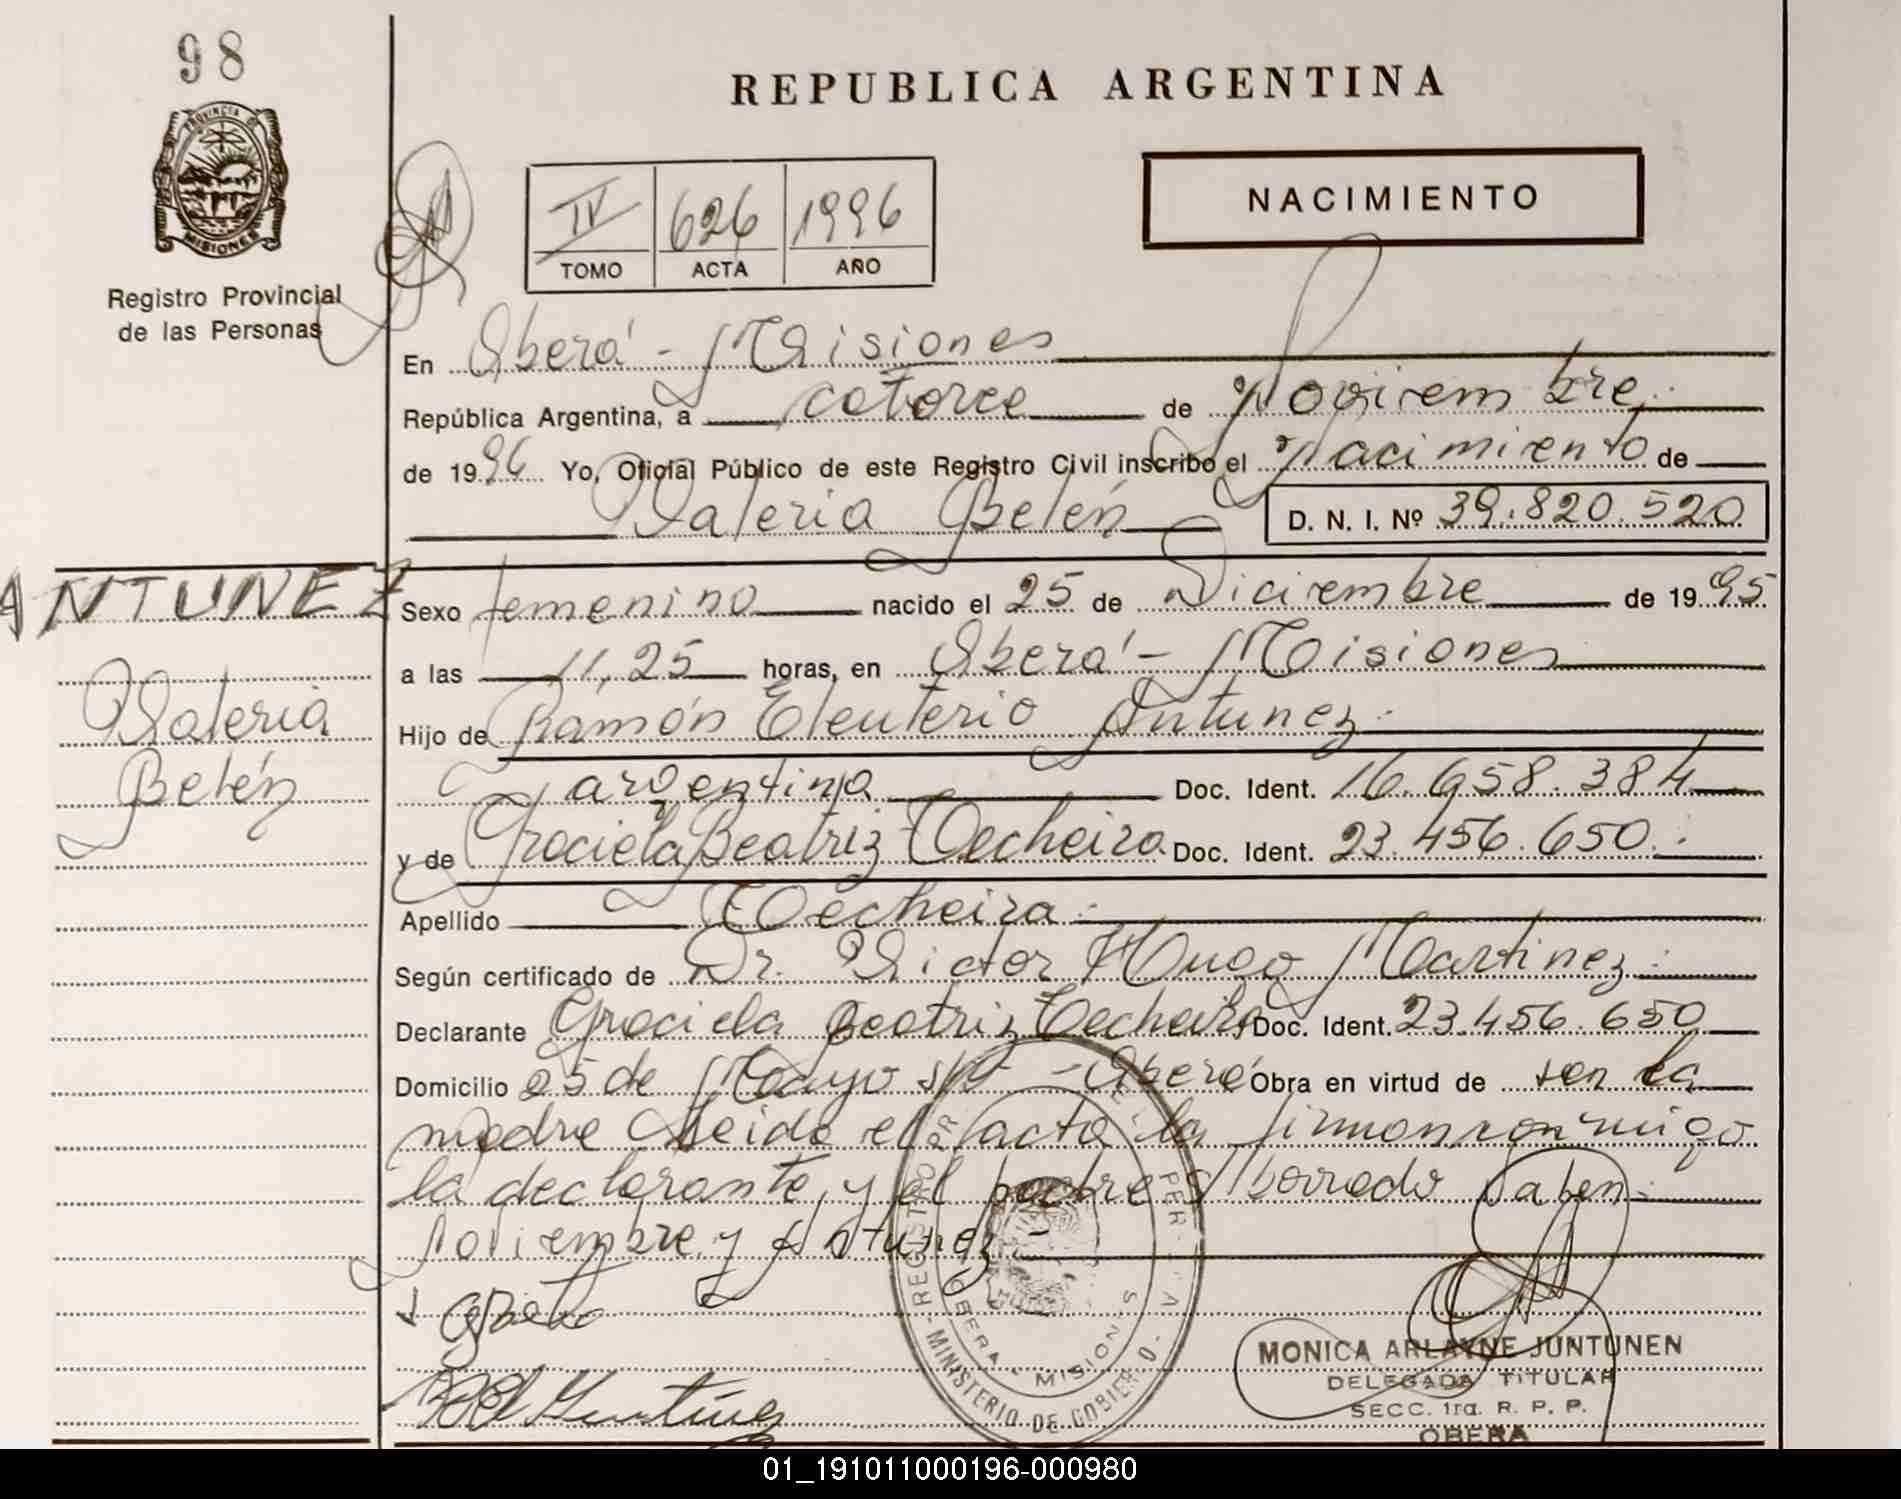 98
REPUBLICA ARGENTINA
PROVINCIA DE
MISIONES
Registro Provincial
de las Personas
IV 626 1996
TOMO ACTA AÑO
NACIMIENTO
En Oberá - Misiones
República Argentina, a catorce de Noviembre.
de 1996 Yo, Oficial Público de este Registro Civil inscribo el Nacimiento de
Valeria Belén D. N. I. Nº 39.820.520
ANTUNEZ
Valeria
Belén
Sexo femenino nacido el 25 de Diciembre de 1995
a las 11,25 horas, en Oberá - Misiones
Hijo de Ramón Eleuterio Antunez.
argentino Doc. Ident. 16.658.384
y de Graciela Beatriz Techeira Doc. Ident. 23.456.650.
Apellido Techeira.
Según certificado de Dr. Victor Hugo Martinez.
Declarante Graciela Beatriz Techeira Doc. Ident. 23.456.650
Domicilio 25 de Mayo s/n - Oberá Obra en virtud de ser la
madre Leida el acta la firman conmigo
la declarante, y el padre s/borrado
Noviembre y Antunez -
REGISTRO PR. DE L PER A
MINISTERIO DE GOBIERNO
OBERA - MISIONES
MONICA ARLAYNE JUNTUNEN
DELEGADA TITULAR
SECC. 1ra. R. P. P.
OBERA
01_191011000196-000980